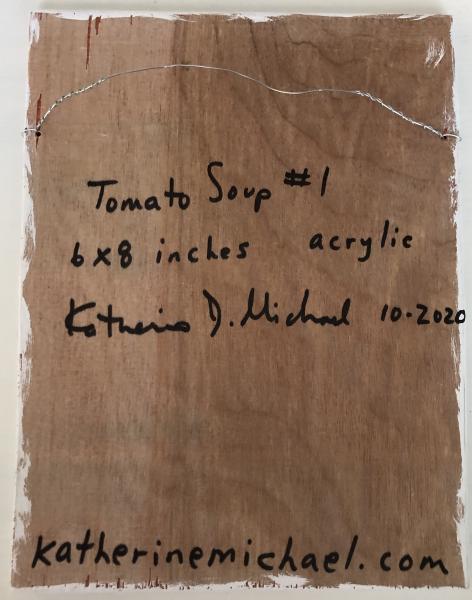 Tomato Soup #1
6x8 inches acrylic
Katherine D. Michael 10-2020
katherinemichael.com